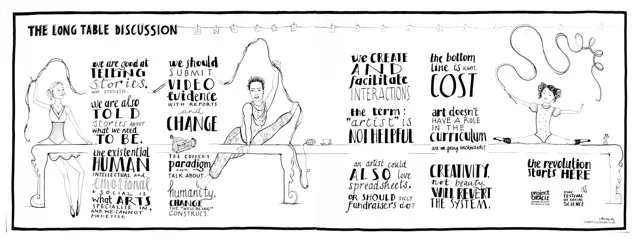 THE LONG TABLE DISCUSSION
we are good at
TELLING
stories.
we are also
TOLD
stories ABOUT
what we NEED
TO BE.
the existential
HUMAN
INTELLECTUAL and
emotional
& SOCIAL IS
what ARTS
SPECIALISE IN,
AND WE CANNOT
we should
SUBMIT
VIDEO
evidence
WITH REPORTS
and
CHANGE
THE CURRENT
paradigm
AND
TALK ABOUT
humanity,
CHANGE
THE "WELL BEING"
CONSTRUCT
we CREATE
AND
facilitate
INTERACTIONS
the term:
"artist" is
NOT HELPFUL
an artist could
ALSO love
spreadsheets.
OR SHOULD ONLY
fundraisers do?
the bottom
line is always
COST
art doesn't
HAVE A ROLE
IN THE
CURRICULUM
are we going backwards?
CREATIVITY,
not beauty,
WILL REVERT
THE SYSTEM.
the revolution
starts HERE
project
ORACLE
FESTIVAL
OF SOCIAL
SCIENCE